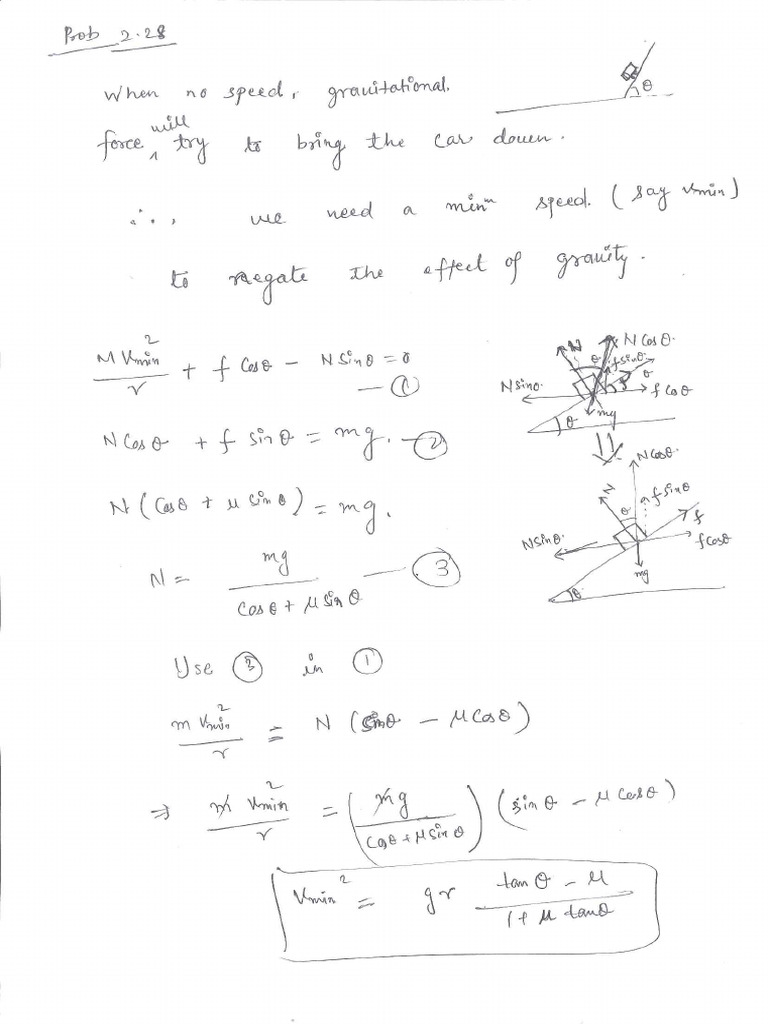 Prob 2.28
When no speed, gravitational.
θ
will
force ^ try to bring the car down.
∴, we need a minᵐ speed. (say vmin)
to negate the effect of gravity.
M Vmin²/r + f Cosθ − N Sinθ = 0 — ①
N Cosθ + f sinθ = mg. — ②
N (Cosθ + μ sinθ) = mg.
N = mg/(Cosθ + μ sinθ) — ③
N N Cosθ. θ f sinθ. θ
N sinθ. f f Cosθ
mg θ
⇓
N Cosθ.
N θ f sinθ f
N sinθ. f cosθ
mg θ
Use ③ in ①
m Vmin²/r = N (sinθ − μ Cosθ)
⇒ m Vmin²/r = (mg/(Cosθ + μ sinθ)) (sinθ − μ Cosθ)
Vmin² = gr (tanθ − μ)/(1 + μ tanθ)